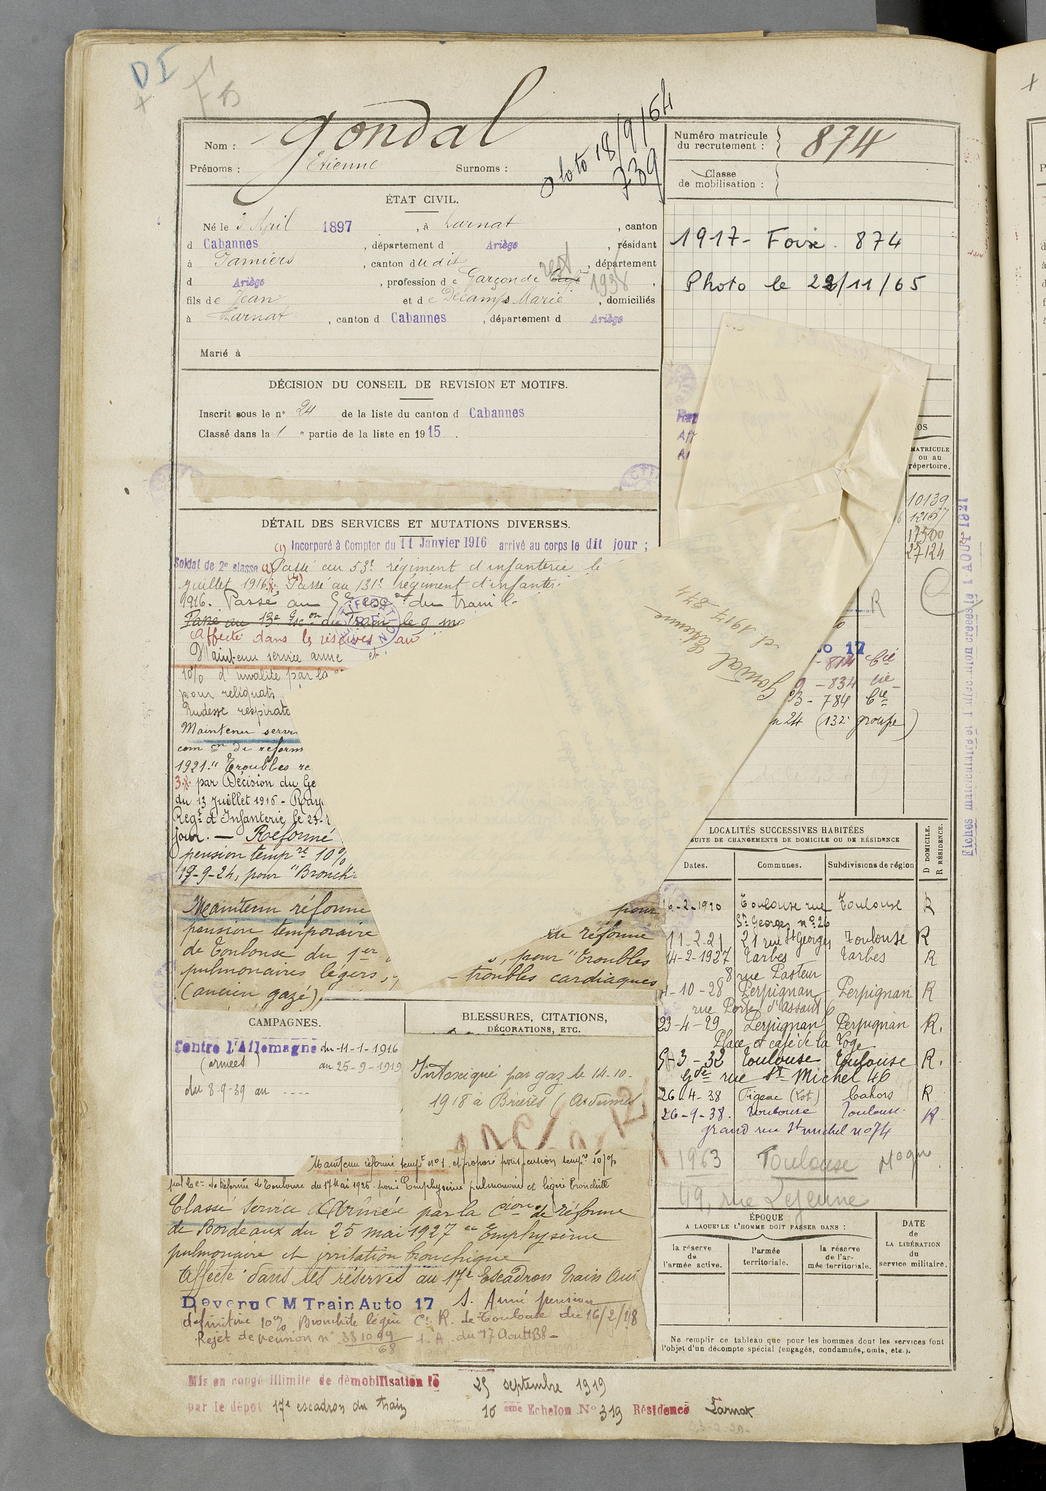 DI
Nom : Gondal
Prénoms : Etienne Surnoms :
Photo 18/9/64
739
Numéro matricule
du recrutement : 874
Classe
de mobilisation :
1917 - Foix. 874
Photo le 22/11/65
ÉTAT CIVIL.
Né le 3 Avril 1897, à Larnat, canton
d Cabannes, département d Ariège, résidant
à Pamiers, canton du dit, département
d Ariège, profession de Garçon de
1938
fils de Jean et de Décamps Marie, domiciliés
à Larnat, canton d Cabannes, département d Ariège
Marié à
DÉCISION DU CONSEIL DE REVISION ET MOTIFS.
Inscrit sous le n° 24 de la liste du canton d Cabannes
Classé dans la 1re partie de la liste en 1915.
DÉTAIL DES SERVICES ET MUTATIONS DIVERSES.
(1) Incorporé à Compter du 11 Janvier 1916 arrivé au corps le dit jour ;
Soldat de 2e classe Passé au 53e régiment d'infanterie le
juillet 1916. Passé au 131e régiment d'infante
1916. Passé au du train l
Passé au 13e Escon du Train le 9 m
Affecté dans les réserves au
Maintenu service armé et
10% d'invalité par la
pour reliquats
Rudesse respirato
Maintenu servi
com on de reform
1921 " Troubles re
3.. par Décision du Gé
du 13 Juillet 1916 - Rayé
Regt d'Infanterie le 23-
jour. — Réformé
pension tempre 10%
17-9-24, pour "Bronchi
Maintenu réformé pour
pension temporaire de réforme
de Toulouse du 1er s, pour "troubles
pulmonaires légers, - troubles cardiaques
(ancien gazé).
MATRICULE
ou au
répertoire.
10139
12167
17500
27124
R
o 17
- 814 Cie
- 834 Cie
B - 784 Cie
n 24 (132e groupe)
Gondal Etienne
cl 1917 874
Fiches matriculaires et l'Allemion créées le 1 AOUT 1921
LOCALITÉS SUCCESSIVES HABITÉES
SUITE DE CHANGEMENTS DE DOMICILE OU DE RÉSIDENCE
D DOMICILE.
R RÉSIDENCE.
Dates. Communes. Subdivisions de région
-2-1920 Toulouse rue Toulouse R
St Georges n° 26
11-2-21 21 rue St Georges Toulouse R
14-2-1927 Tarbes Tarbes R
8 rue Pasteur
1-10-28 Perpignan Perpignan R
rue Porte d'Assaut 6
23-4-29 Perpignan Perpignan R.
Place et café de la Loge
9-3-32 Toulouse Toulouse R.
Gde rue St Michel 46
26-4-38 Figeac (Lot) Cahors R
26-9-38. Toulouse Toulouse. R.
grand rue St michel n° 74
1963 Toulouse
49, rue Lejeune
CAMPAGNES.
Contre l'Allemagne du 11-1-1916
(armées) au 25-9-1919
du 8-9-39 au ....
BLESSURES, CITATIONS,
DÉCORATIONS, ETC.
Intoxiqué par gaz le 14-10-
1918 à Brières (Ardennes
Maintenu réformé tempre n° 1 et proposé pour pension tempre 10%
par Con de Réforme de Toulouse du 17 Mai 1926 pour Emphysème pulmonaire et légère bronchite
Classé Service Armée par la Cion de réforme
de Bordeaux du 25 mai 1927 " Emphysème
pulmonaire et irritation bronchique
Affecté dans les réserves au 17e Escadron Train Aut
Devenu C M Train Auto 17 S. Armé pension
définitive 10% Bronchite légère C. R. de Toulouse du 16/2/38
Rejet de pension n° 381099 I. A. du 17 Aout 38 -
68
ÉPOQUE
A LAQUELLE L'HOMME DOIT PASSER DANS :
la réserve
de
l'armée active.
l'armée
territoriale.
la réserve
de l'ar-
mée territoriale.
DATE
de
LA LIBÉRATION
du
service militaire.
Ne remplir ce tableau que pour les hommes dont les services font
l'objet d'un décompte spécial (engagés, condamnés, omis, etc.).
Mis en congé illimité de démobilisation le 25 septembre 1919
par le dépôt 17e escadron du train 10 ème Echelon N° 319 Résidence Larnat